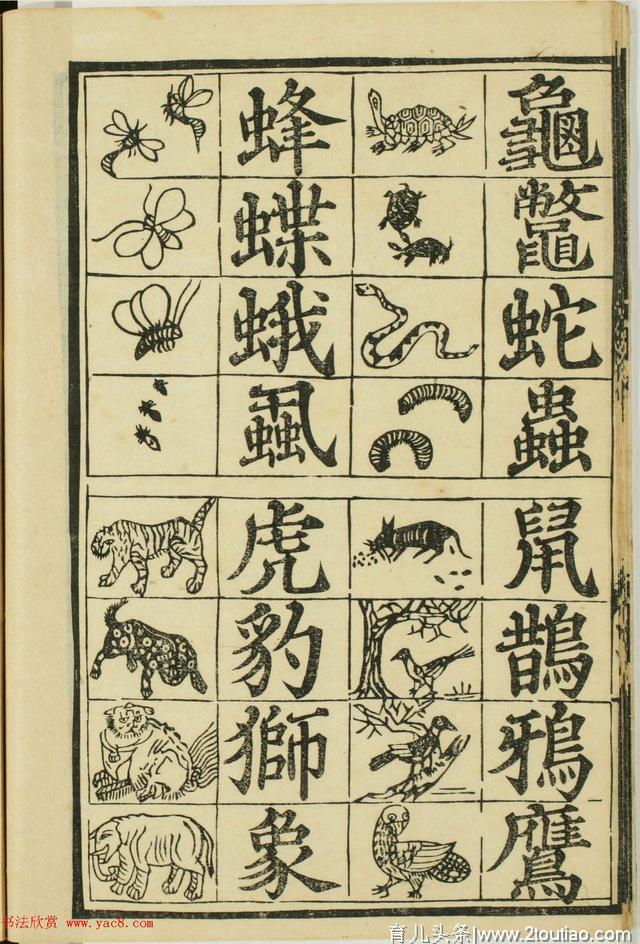 龜鼈蛇蟲
蜂蝶蛾蝨
鼠鵲鴉鷹
虎豹獅象
书法欣赏 www.yac8.com
育儿头条/www.2toutiao.com